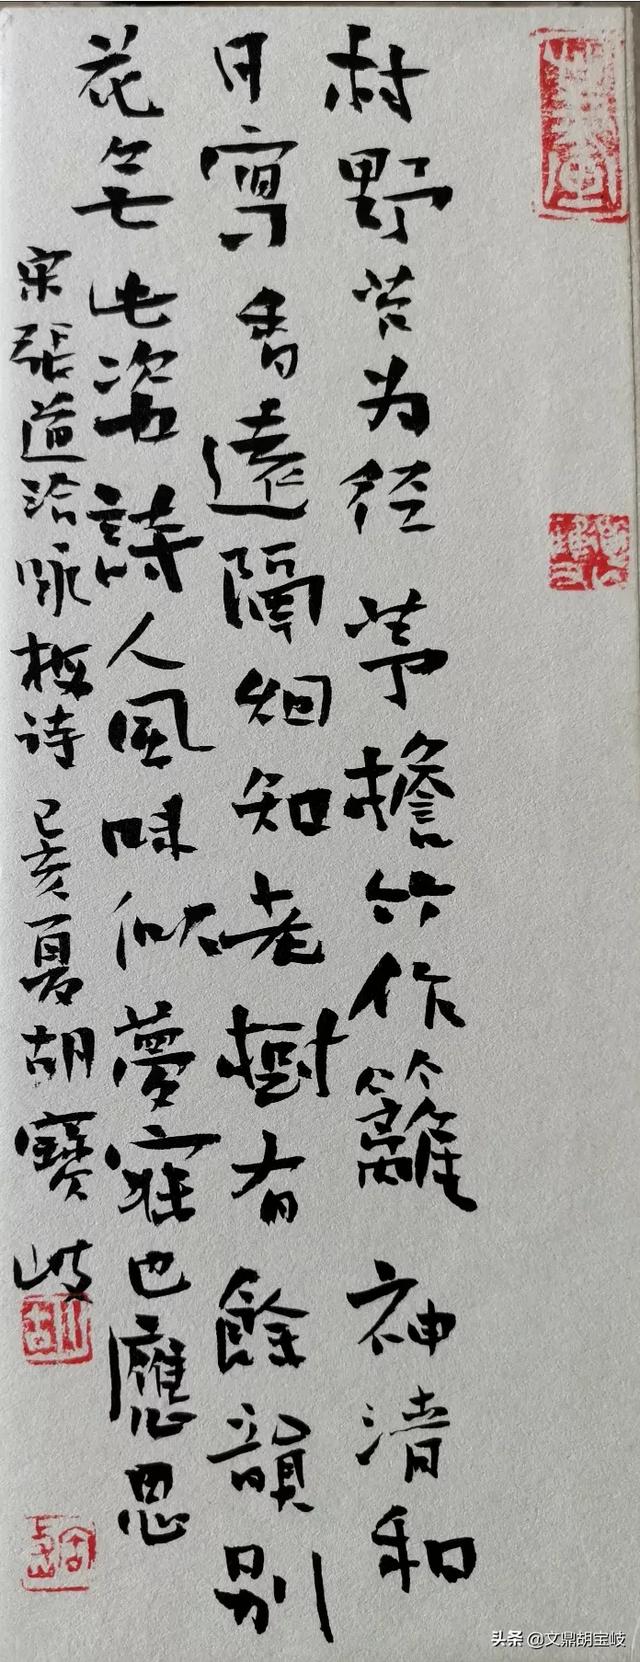 村野苔为径茅檐竹作籬神清和
月寫香遠隔烟知老樹有餘韻別
花無此姿詩人風味似夢寐也應思
宋張道洽咏梅诗己亥夏胡寶岐
头条 @文鼎胡宝岐